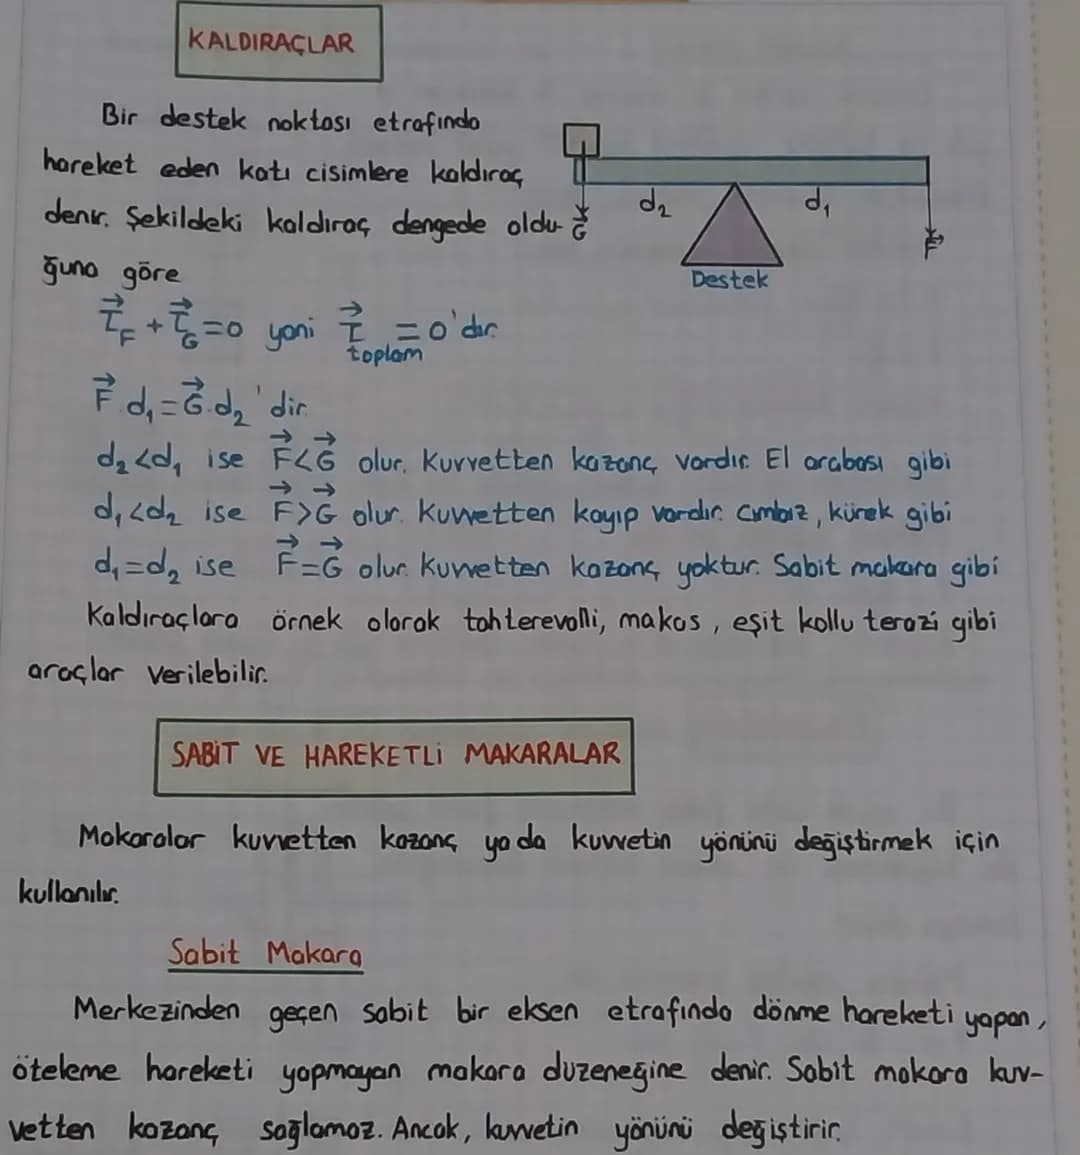 KALDIRAÇLAR
Bir destek noktası etrafında
hareket eden katı cisimlere kaldıraç
denir. Şekildeki kaldıraç dengede oldu-
ğuna göre
G
d₂
d₁
F
Destek
τ⃗_F + τ⃗_G = 0 yani τ⃗_toplam = 0'dır.
F⃗.d₁ = G⃗.d₂'dir.
d₂<d₁ ise F⃗<G⃗ olur. Kuvvetten kazanç vardır. El arabası gibi
d₁<d₂ ise F⃗>G⃗ olur. Kuvvetten kayıp vardır. Cımbız, kürek gibi
d₁=d₂ ise F⃗=G⃗ olur. Kuvvetten kazanç yoktur. Sabit makara gibi
Kaldıraçlara örnek olarak tahterevalli, makas, eşit kollu terazi gibi
araçlar verilebilir.
SABİT VE HAREKETLİ MAKARALAR
Makaralar kuvvetten kazanç ya da kuvvetin yönünü değiştirmek için
kullanılır.
Sabit Makara
Merkezinden geçen sabit bir eksen etrafında dönme hareketi yapan,
öteleme hareketi yapmayan makara düzeneğine denir. Sabit makara kuv-
vetten kazanç sağlamaz. Ancak, kuvvetin yönünü değiştirir.